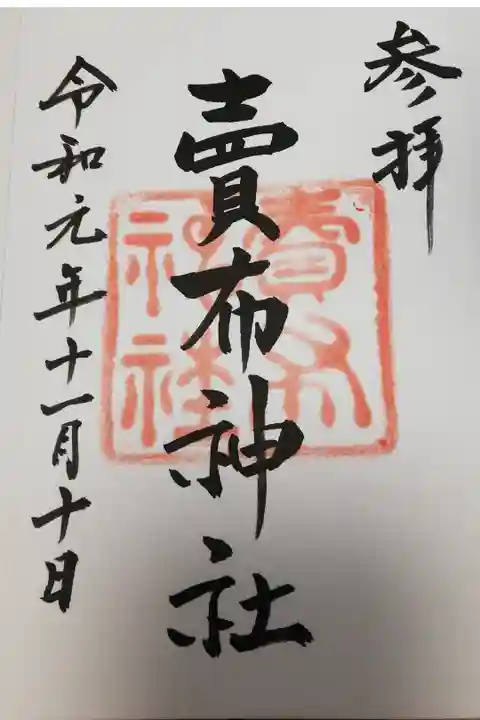 参拝
賣布神社
賣布
神社
令和元年十一月十日